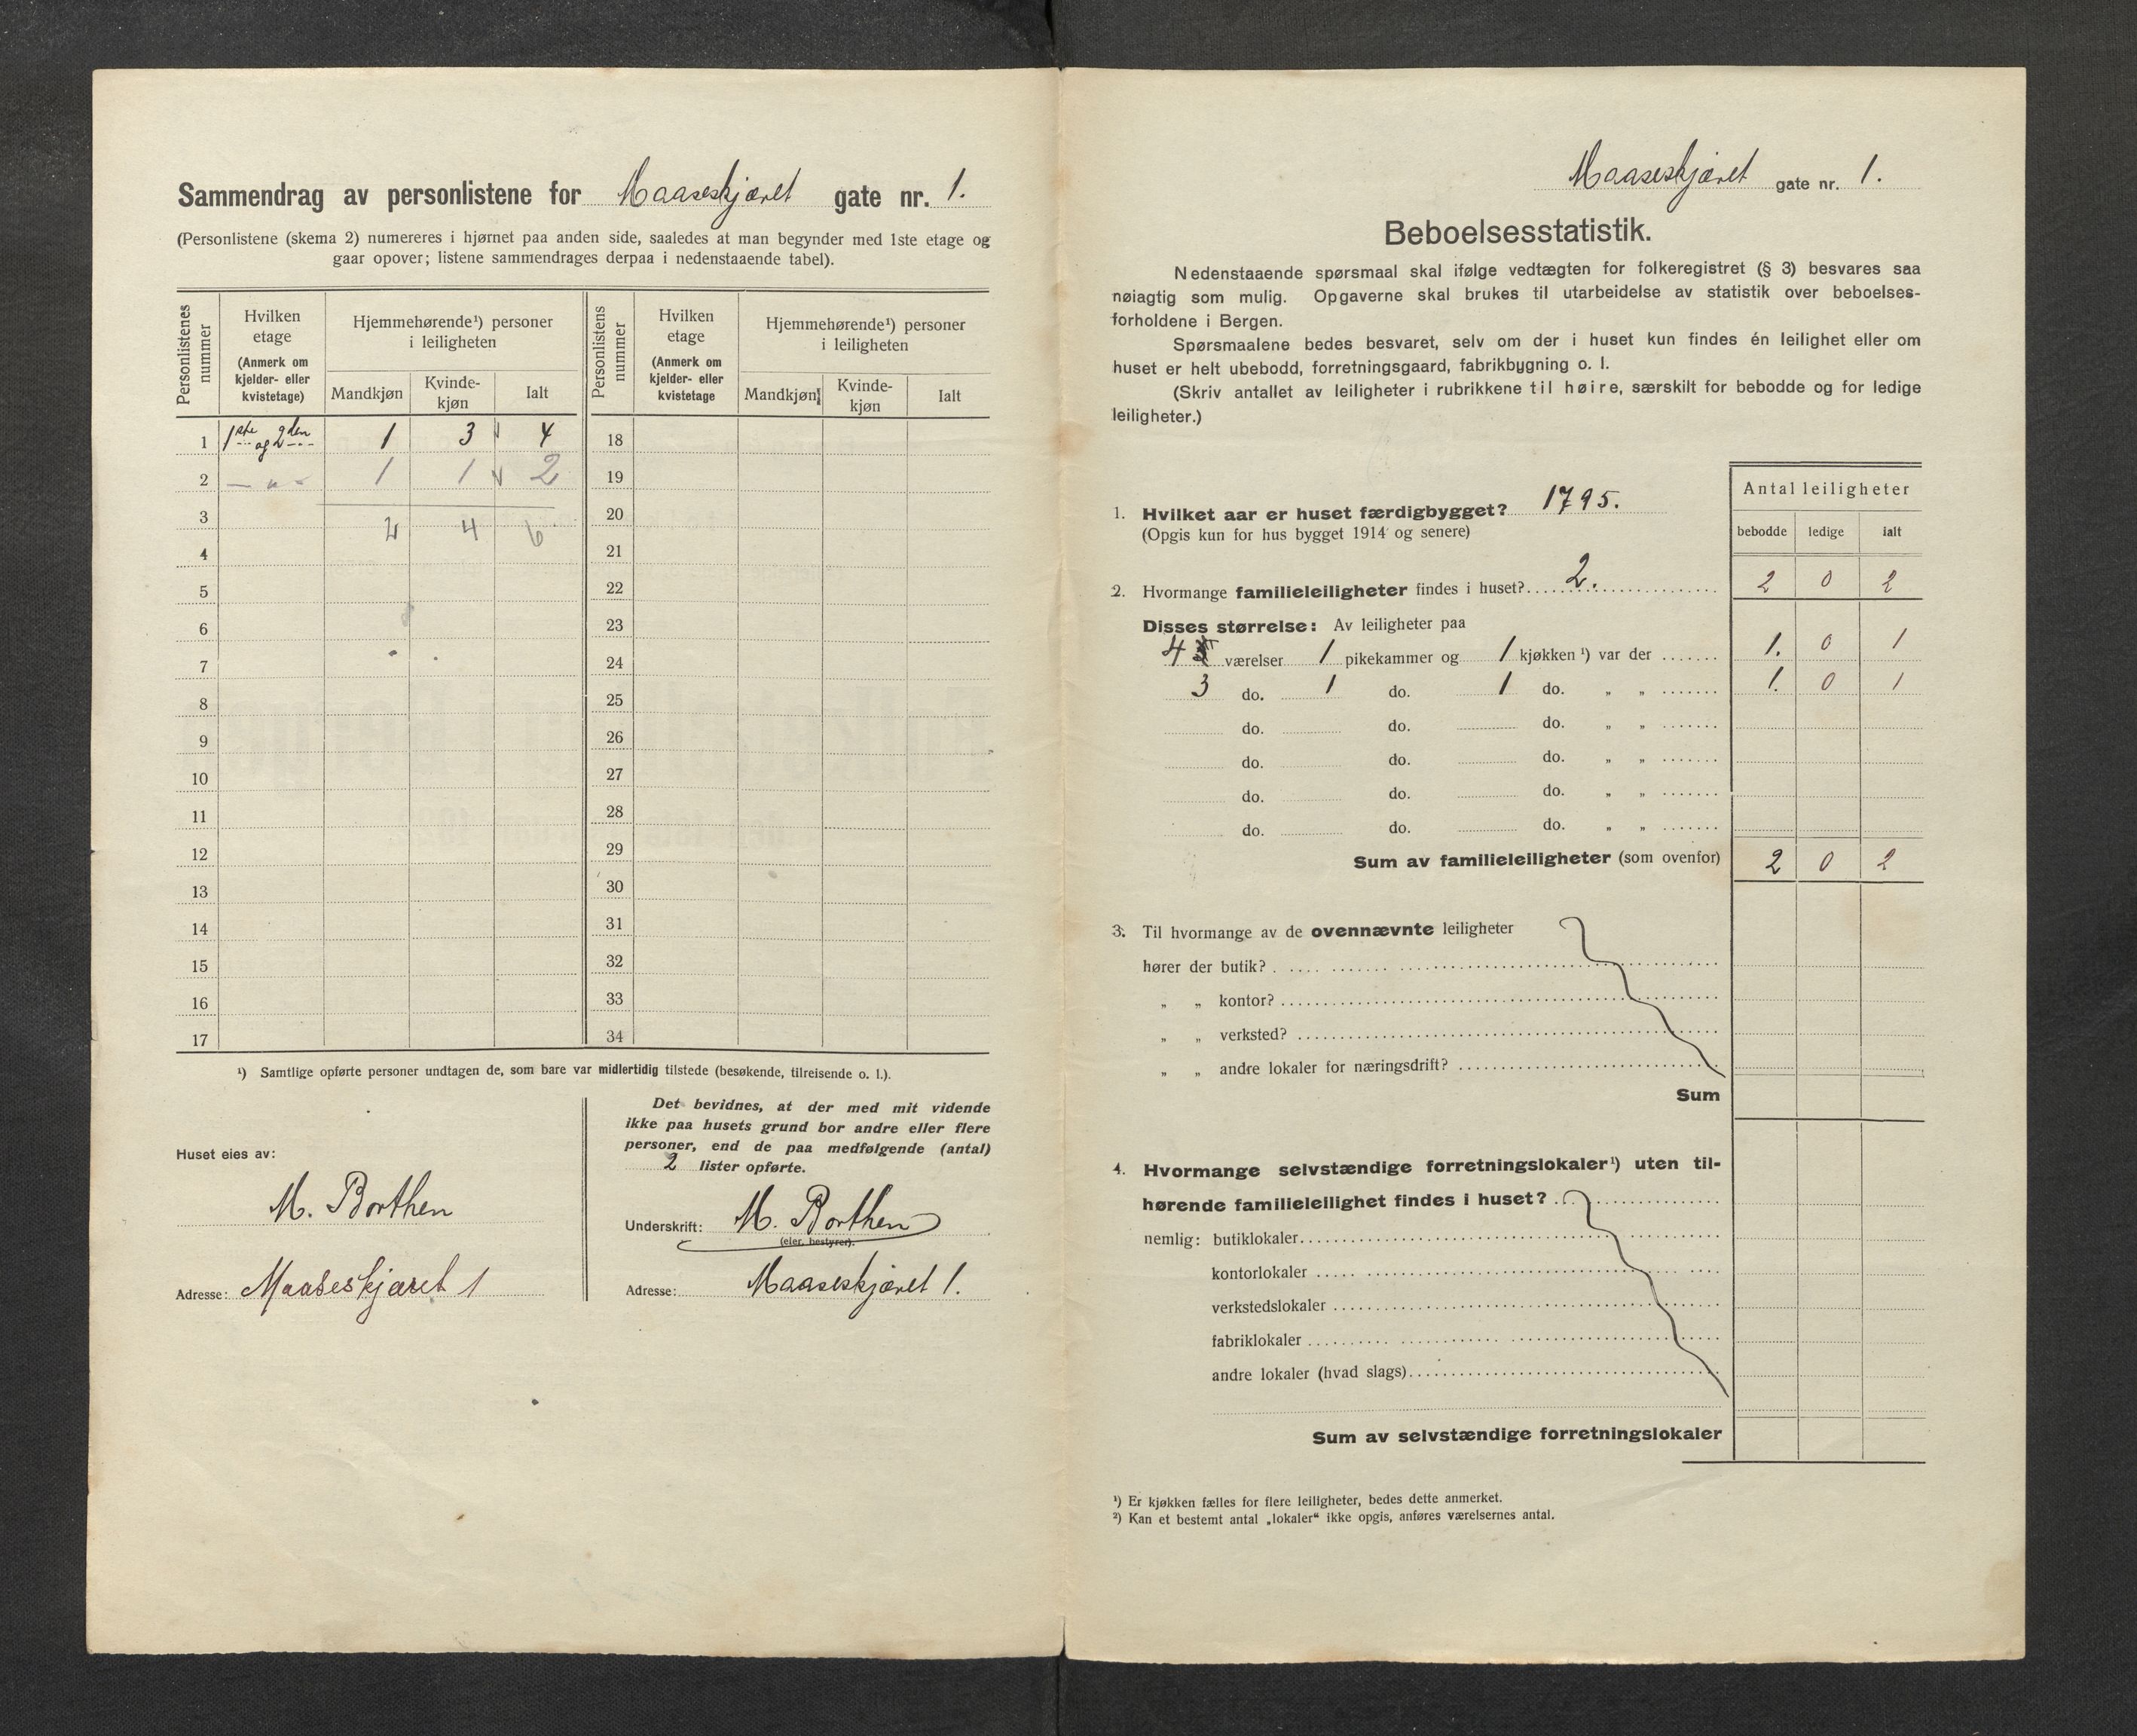 Sammendrag av personlistene for Maaseskjæret gate nr. 1.
(Personlistene (skema 2) numereres i hjørnet paa anden side, saaledes at man begynder med 1ste etage og
gaar opover; listene sammendrages derpaa i nedenstaaende tabel).
Personlistenes nummer
Hvilken etage
(Anmerk om kjelder- eller kvistetage)
Hjemmehørende¹) personer i leiligheten
Mandkjøn Kvinde-kjøn Ialt
Personlistens nummer
Hvilken etage
(Anmerk om kjelder- eller kvistetage
Hjemmehørende¹) personer i leiligheten
Mandkjøn Kvinde-kjøn Ialt
1 1ste og 2den 1 3 4 18
2 — " — 1 1 2 19
3 2 4 6 20
4 21
5 22
6 23
7 24
8 25
9 26
10 27
11 28
12 29
13 30
14 31
15 32
16 33
17 34
¹) Samtlige opførte personer undtagen de, som bare var midlertidig tilstede (besøkende, tilreisende o. l.).
Huset eies av:
M. Borthen
Adresse: Maaseskjæret 1
Det bevidnes, at der med mit vidende
ikke paa husets grund bor andre eller flere
personer, end de paa medfølgende (antal)
2 lister opførte.
Underskrift: M. Borthen
(eier, bestyrer).
Adresse: Maaseskjæret 1.
Maaseskjæret gate nr. 1.
Beboelsesstatistik.
Nedenstaaende spørsmaal skal ifølge vedtægten for folkeregistret (§ 3) besvares saa
nøiagtig som mulig. Opgaverne skal brukes til utarbeidelse av statistik over beboelses-
forholdene i Bergen.
Spørsmaalene bedes besvaret, selv om der i huset kun findes én leilighet eller om
huset er helt ubebodd, forretningsgaard, fabrikbygning o. l.
(Skriv antallet av leiligheter i rubrikkene til høire, særskilt for bebodde og for ledige
leiligheter.)
Antal leiligheter
bebodde ledige ialt
1. Hvilket aar er huset færdigbygget? 1795.
(Opgis kun for hus bygget 1914 og senere)
2. Hvormange familieleiligheter findes i huset? 2. 2 0 2
Disses størrelse: Av leiligheter paa
4 værelser 1 pikekammer og 1 kjøkken ¹) var der 1. 0 1
3 do. 1 do. 1 do. " " 1. 0 1
do. do. do. " "
do. do. do. " "
do. do. do. " "
do. do. do. " "
Sum av familieleiligheter (som ovenfor) 2 0 2
3. Til hvormange av de ovennævnte leiligheter
hører der butik?
" " kontor?
" " verksted?
" " andre lokaler for næringsdrift?
Sum
4. Hvormange selvstændige forretningslokaler¹) uten til-
hørende familieleilighet findes i huset?
nemlig: butiklokaler
kontorlokaler
verkstedslokaler
fabriklokaler
andre lokaler (hvad slags)
Sum av selvstændige forretningslokaler
¹) Er kjøkken fælles for flere leiligheter, bedes dette anmerket.
²) Kan et bestemt antal „lokaler“ ikke opgis, anføres værelsernes antal.